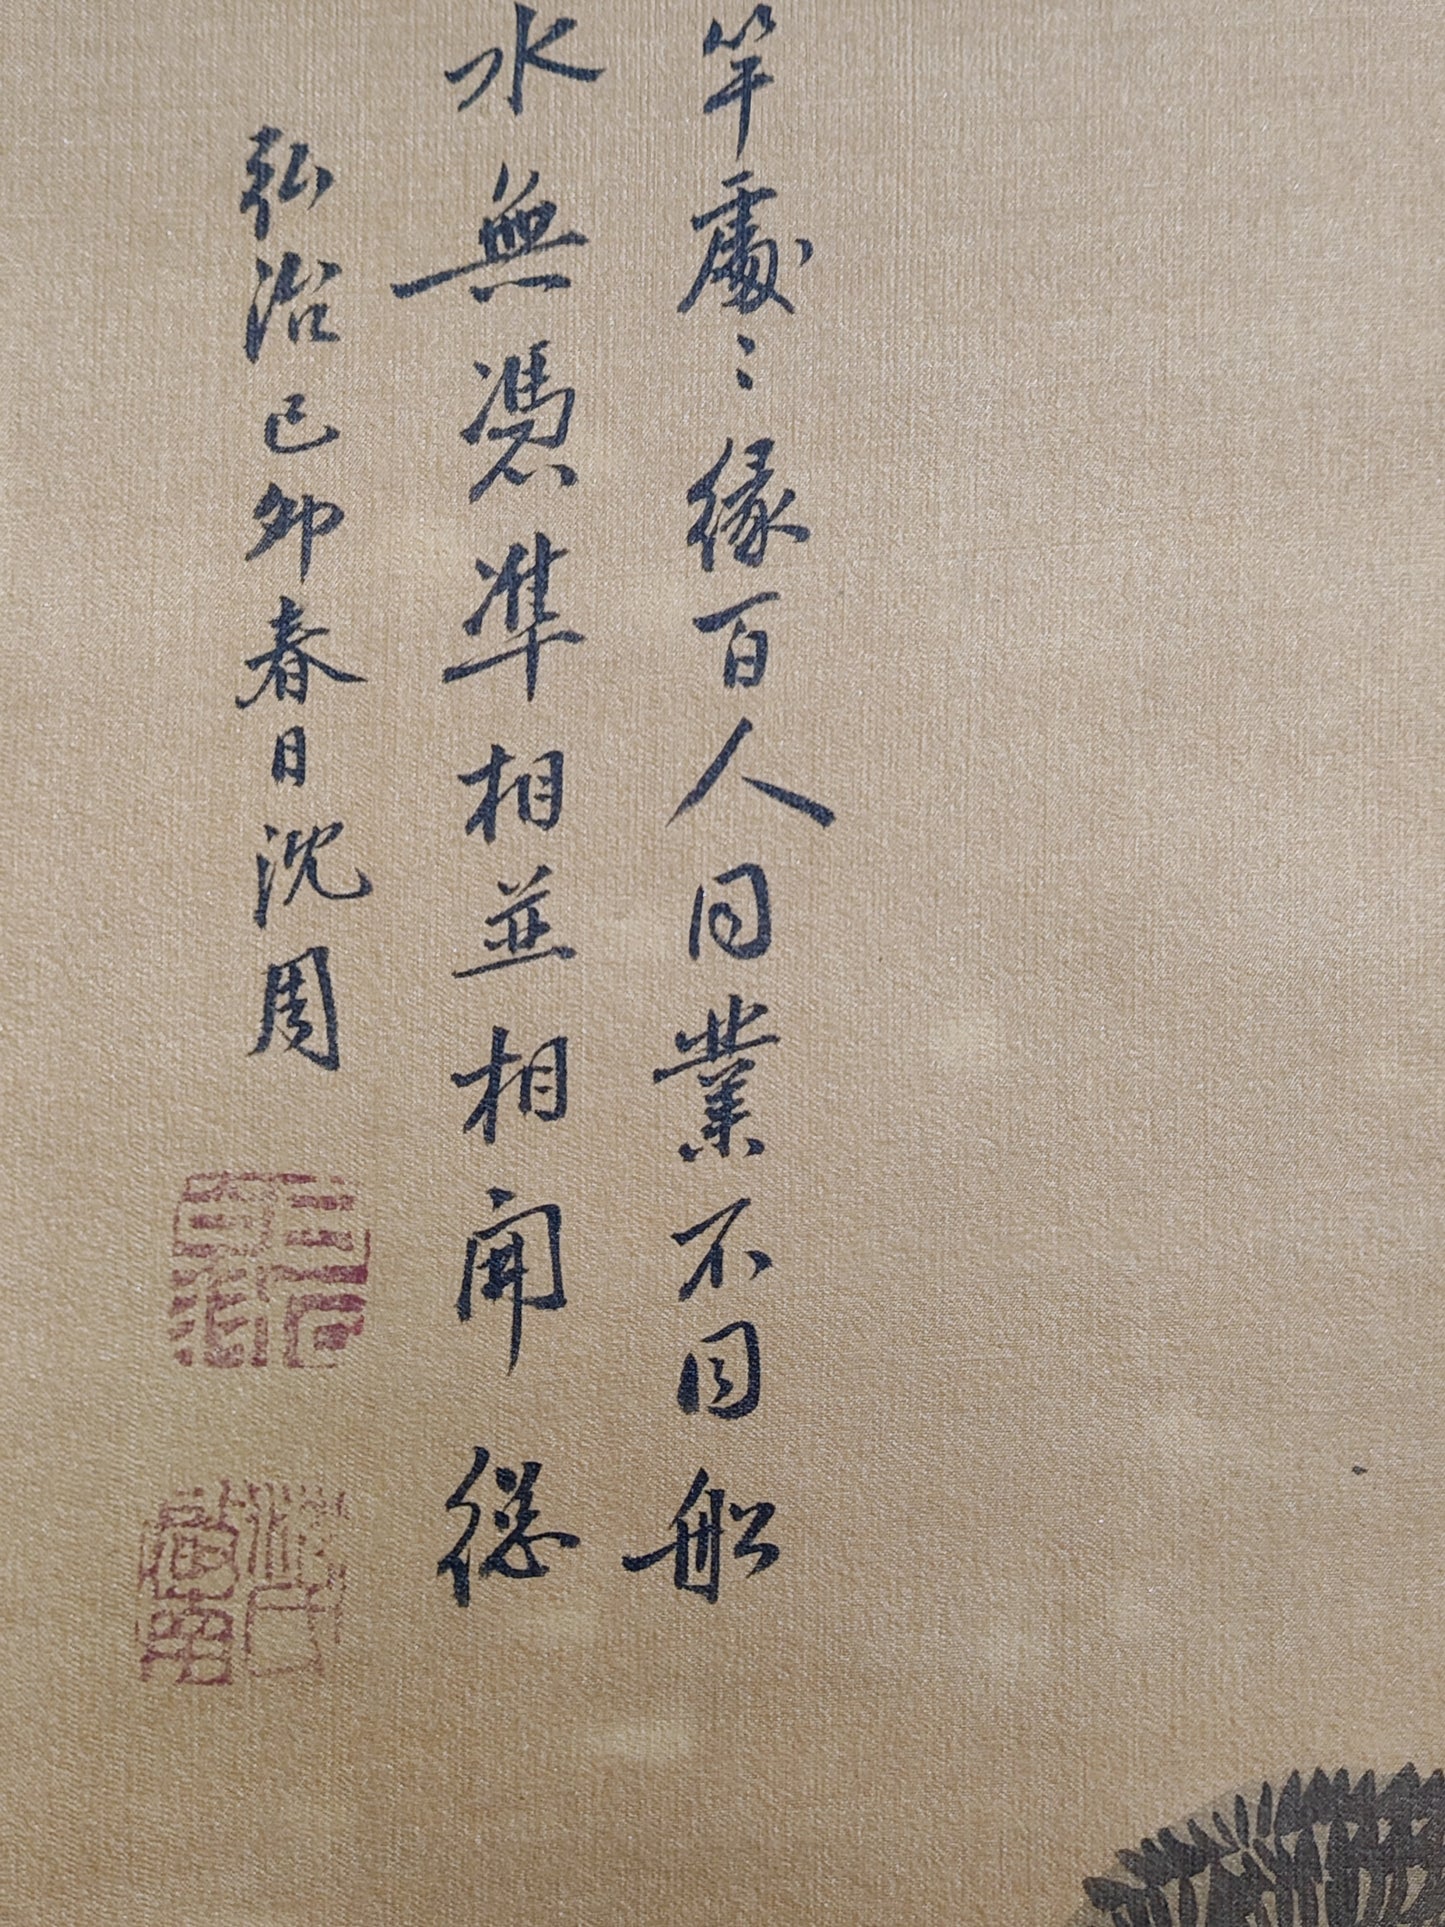 竿處〻緣百人同業不同船
水無憑準相並相聞總
弘治己卯春日沈周
沈氏啟南